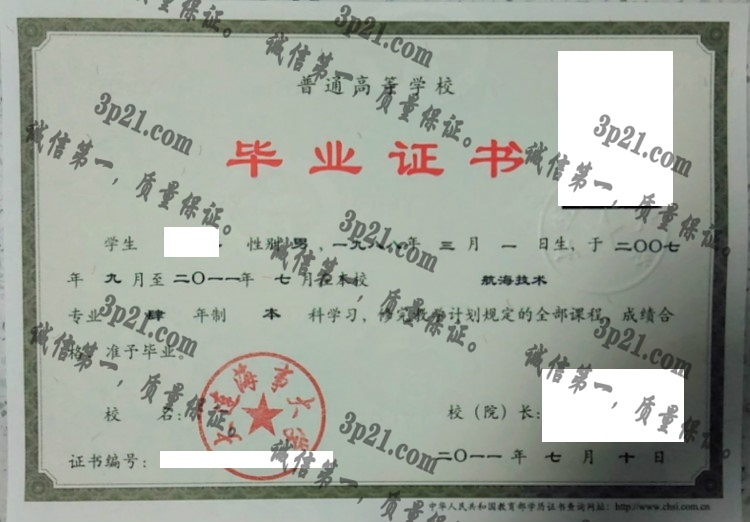 普通高等学校
毕业证书
学生 性别 男，一九八八年 三 月 一 日生，于 二〇〇七
年 九 月至 二〇一一年 七 月在本校 航海技术
专业 肆 年制 本 科学习，修完教学计划规定的全部课程，成绩合
格，准予毕业。
大连海事大学
校 名： 校（院）长：
证书编号： 二〇一一年 七 月 十 日
中华人民共和国教育部学历证书查询网址：http://www.chsi.com.cn
3p21.com
诚信第一，质量保证。
3p21.com
诚信第一，质量保证。
3p21.com
诚信第一，质量保证。
3p21.com
诚信第一，质量保证。
3p21.com
诚信第一，质量保证。
3p21.com
诚信第一，质量保证。
3p21.com
诚信第一，质量保证。
质量保证。